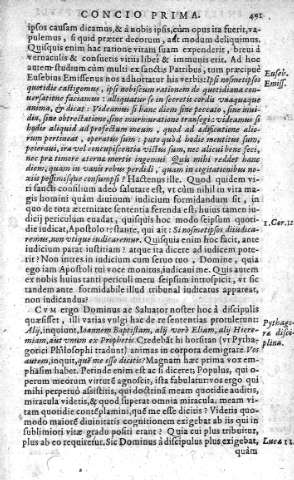 CONCIO PRIMA. 491
ipsos causam dicamus, & à nobis ipsis, cùm opus ita fuerit, va-
pulemus, si quid præter decorum, aut modum deliquimus.
Quisquis enim hac ratione vitam suam expenderit, breui à
vernaculis & consuetis vitiis liber & immunis erit. Ad hoc
autem studium cùm multi ex sanctis Patribus, tum præcipuè
Eusebius Emissenus nos adhortatur his verbis: Ipsi nosmetipsos
Euseb.
Emiss.
quotidie castigemus, ipsi nobiscum rationem de quotidiana con-
uersatione faciamus: alloquatur se in secretis cordis vnaquæque
anima, & dicat: Videamus si hanc diem sine peccato, sine inui-
dia, sine obtrectatione, sine murmuratione transegi: videamus si
hodie aliquid ad profectum meum, quod ad ædificationem alio-
rum pertineat, operatus sum: puto quòd hodie mentitus sum,
peieraui, ira vel concupiscentia victus sum, nec alicui bene feci,
nec pro timore æternæ mortis ingemui. Quis mihi reddet hanc
diem, quam in vanis rebus perdidi, quam in cogitationibus no-
xiis consumpsi? Hactenus ille. Quod quidem vi-
ri sancti consilium adeò salutare est, vt cùm nihil in vita ma-
gis homini quàm diuinum iudicium formidandum sit, in
quo de tota æternitate sententia ferenda est, huius tamen iu-
dicij periculum euadat, quisquis hoc modo seipsum quoti-
die iudicat, Apostolo testante, qui ait: Si nosmetipsos diiudica-
1. Cor. 11
remus, non vtique iudicaremur. Quisquis enim hoc facit, ante
iudicium parat iustitiam: atque ita dicere ad iudicem pote-
rit: Non intres in iudicium cum seruo tuo, Domine, quia
ego iam Apostoli tui voce monitus, iudicaui me. Quis autem
ex nobis huius tanti periculi metu seipsum introspicit, vt sic
tandem ante formidabile illud tribunal iudicatus appareat,
non iudicandus?
CVM ergo Dominus ac Saluator noster hoc à discipulis
quæsisset, illi varias vulgi hac de re sententias protulerunt:
Alij, inquiunt, Ioannem Baptistam, alij verò Eliam, alij Hiere-
miam, aut vnum ex Prophetis. Credebāt hi forsitan (vt Pytha-
Pythago-
ræ disci-
plina.
gorici Philosophi tradunt) animas in corpora demigrare. Vos
autem, inquit, quē me esse dicitis? Magnam hæc prima vox em-
phasim habet. Perinde enim est ac si diceret; Populus, qui o-
perum meorum virtutē agnoscit, ista fabulatur: vos ergo qui
mihi perpetuò assistitis, qui doctrinā meam quotidie auditis,
miracula videtis, & quod superat omnia miracula, meam vi-
tam quotidie contēplamini, quē me esse dicitis? Videtis quo-
modo maiorē diuinitatis cognitionem exigebat ab iis qui in
sublimiori vitæ gradu positi erant? Quia cui plus tribuitur,
plus ab eo requiritur. Sic Dominus à discipulis plus exigebat,
Luc. 12
quàm